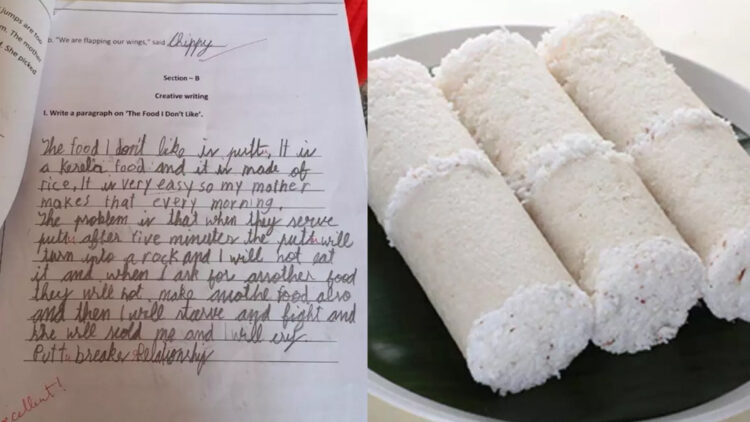 Jumps are too
m. The mother
. She picked
b. "We are flapping our wings," said Chippy
Section – B
Creative writing
I. Write a paragraph on 'The Food I Don't Like'.
The food I don't like is putt. It is
a Kerela food and it is made of
rice. It is very easy so my mother
makes that every morning.
The problem is that when they serve
putt after five minutes the putt will
turn into a rock and I will not eat
it and when I ask for another food
they will not make anothe food also
and then I will starve and fight and
she will scold me and I will cry.
Putt breakes Relationship
excellent!